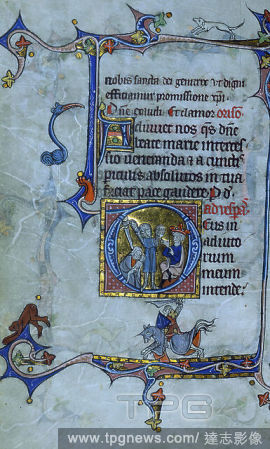 nobis sancta dei genitrix ut digni
efficiamur promissione xpi
Dne exaudi Et clamor oriso
Adiuvet nos qs dne
beate marie interces
sio veneranda & a cunctis
piculis absolutos in tua
faciat pace gaudere p d
ad vespas
Deus in
adiuto
rium
meum
intende
TPG
www.tpgnews.com/達志影像